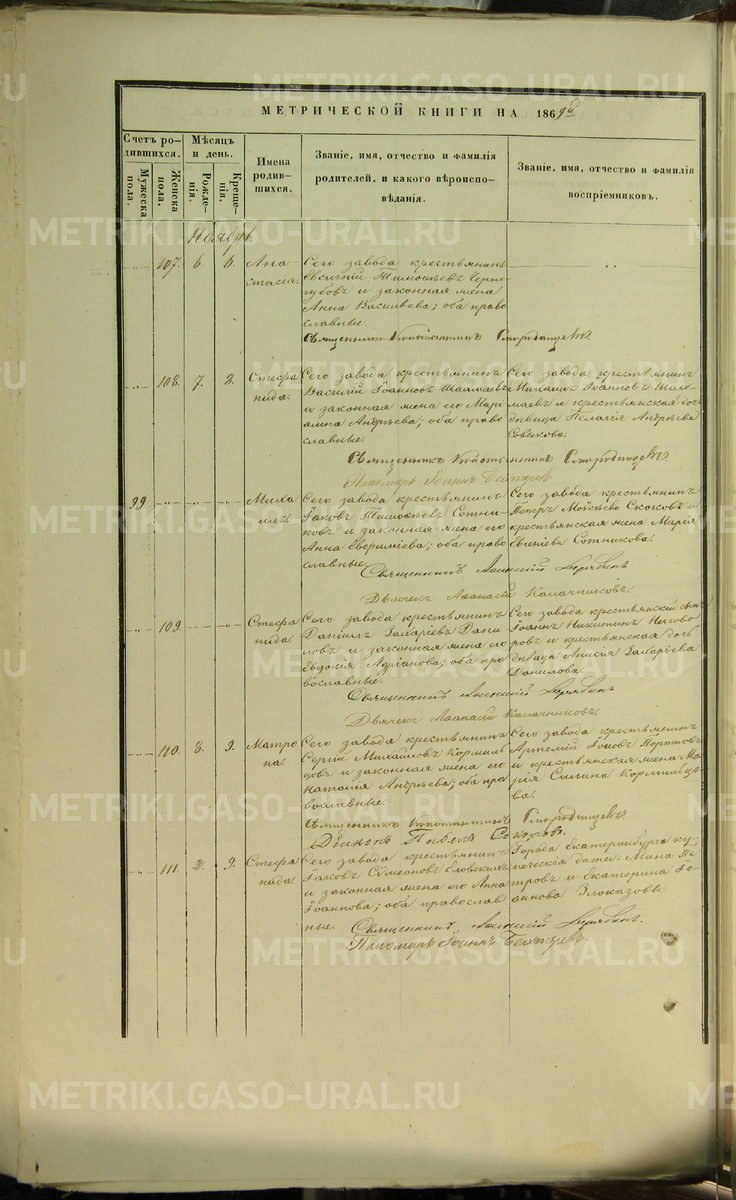 МЕТРИЧЕСКОЙ КНИГИ НА 1869й
Счетъ родившихся.
Мужеска пола.
Женска пола.
Мѣсяцъ и день.
Рожденія.
Крещенія.
Имена родившихся.
Званіе, имя, отчество и фамилія родителей, и какого вѣроисповѣданія.
Званіе, имя, отчество и фамилія воспріемниковъ.
Ноябрь
107. 6. 6. Анастасія.
Сего завода крестьянинъ
Тимоѳеевъ
и законная жена
Анна Васильева; оба православные.
Священникъ Константинъ Смородинцевъ.
108. 7. 8. Стефанида.
Сего завода крестьянинъ
Василій Іоанновъ Шаламаевъ
и законная жена его Маріамна Андреева; оба православные.
Сего завода крестьянинъ
Михаилъ Іоанновъ Шаламаевъ и крестьянская дочь
дѣвица Пелагія Андреева
Священникъ Константинъ Смородинцевъ
Пономарь Іоаннъ Бехтеревъ
99. Михаилъ.
Сего завода крестьянинъ
Іаковъ Тимоѳеевъ Сотниковъ и законная жена его
Анна; оба православные.
Сего завода крестьянинъ
Петръ Моѵсеевъ и
крестьянская жена Марія
Евгеніева Сотникова.
Священникъ Алексій
Дьячекъ Аѳанасій Калачниковъ.
109. Стефанида.
Сего завода крестьянинъ
Даніилъ Захаріевъ Даниловъ и законная жена его
Евдокія Адріанова; оба православные.
Сего завода крестьянскій сынъ
Іоаннъ Никитинъ
и крестьянская дочь
дѣвица Анисія Захаріева
Данилова.
Священникъ Алексій
Дьячекъ Аѳанасій Калачниковъ.
110. 8. 9. Матрона.
Сего завода крестьянинъ
Сергій Михайловъ Кормильцовъ и законная жена его
Наталія Андреева; оба православные.
Сего завода крестьянинъ
Іововъ
и крестьянская жена Марія Силина Кормильцова.
Священникъ Константинъ Смородинцевъ.
Діаконъ Павелъ
111. 2. 9. Стефанида.
Сего завода крестьянинъ
Іаковъ Сѵмеоновъ
и законная жена его Анна
Іоаннова; оба православные.
Города Екатеринбурга купеческія дѣти: Мина Петровъ и Екатерина Іоаннова Блоказовы
Священникъ Алексій
Пономарь Іоаннъ Бехтеревъ.
METRIKI.GASO-URAL.RU